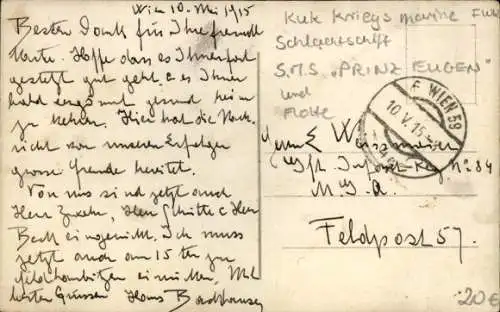 Wien 10. Mai 1915
Besten Dank für Ihre freundl
Karte. Hoffe dass es Ihnen fort
gesetzt gut geht & es Ihnen
bald vergönnt gesund heim
zu kehren. Hier hat die Nach-
richt von unseren Erfolgen
grosse Freude bereitet.
Von uns sind jetzt auch
Herr Herr Schütte & Herr
Beck eingerückt. Ich muss
jetzt auch am 15ten zu
einrücken. Mit
besten Grüssen Hans
KuK Kriegsmarine
Schlachtschiff
S.M.S. „PRINZ EUGEN"
und
Flotte
F WIEN 59
10.V.15
Herrn E.
Inft. Reg. No. 84
Feldpost 57.
20€